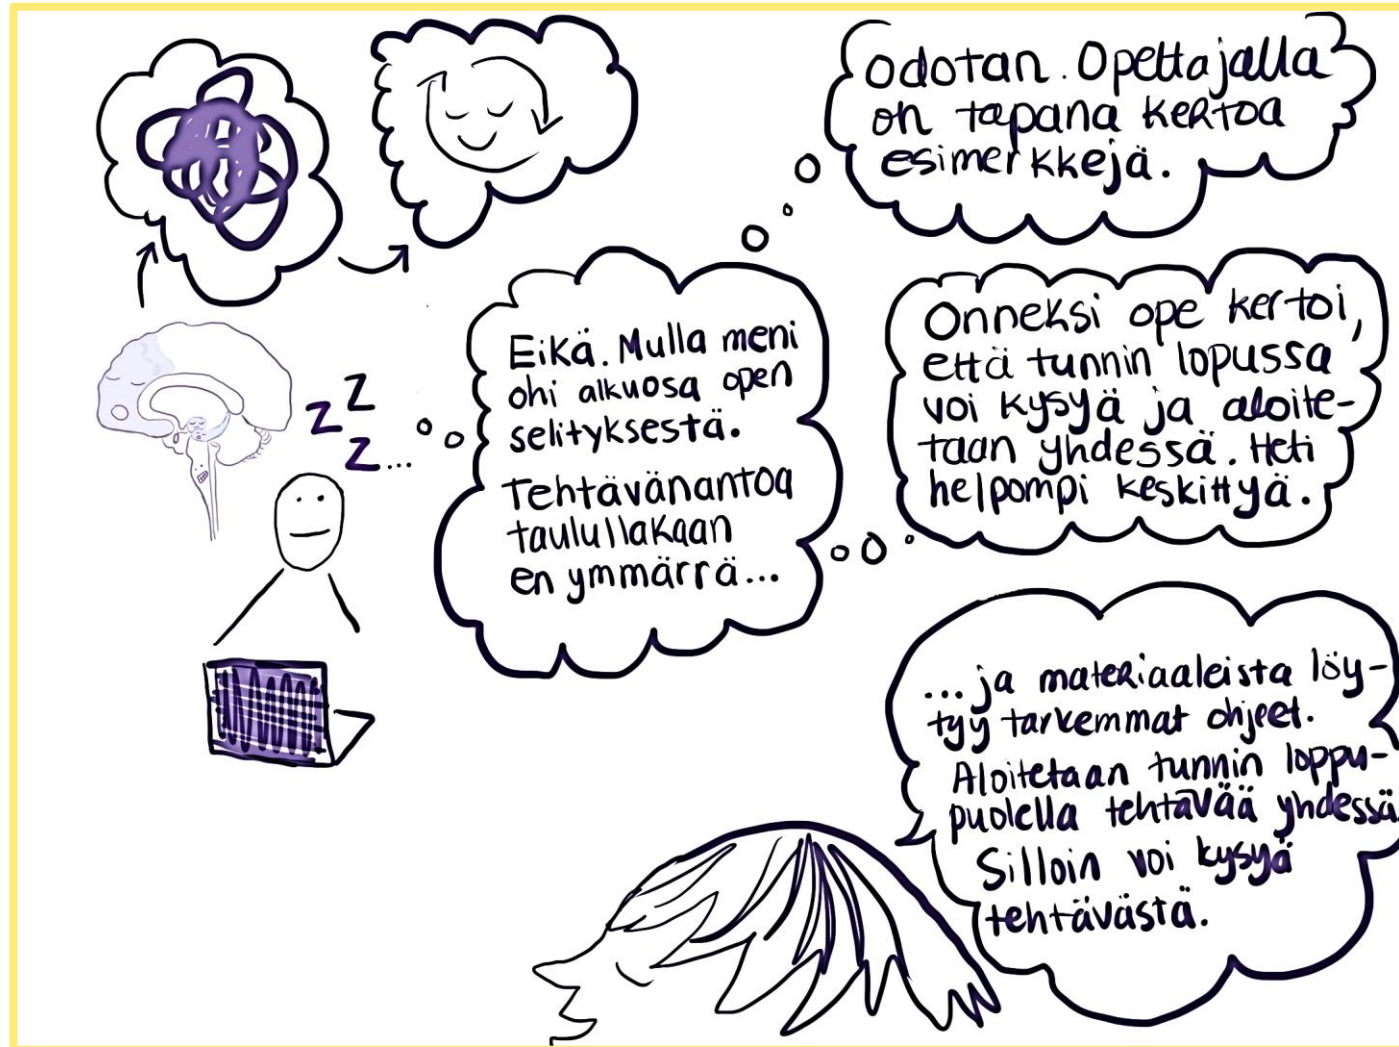 z z
z...
Eikä. Mulla meni
ohi alkuosa open
selityksestä.
Tehtävänantoa
taulullakaan
en ymmärrä...
Odotan. Opettajalla
on tapana kertoa
esimerkkejä.
Onneksi ope kertoi,
että tunnin lopussa
voi kysyä ja aloite-
taan yhdessä. Heti
helpompi keskittyä.
...ja materiaaleista löy-
tyy tarkemmat ohjeet.
Aloitetaan tunnin loppu-
puolella tehtävää yhdessä
Silloin voi kysyä
tehtävästä.